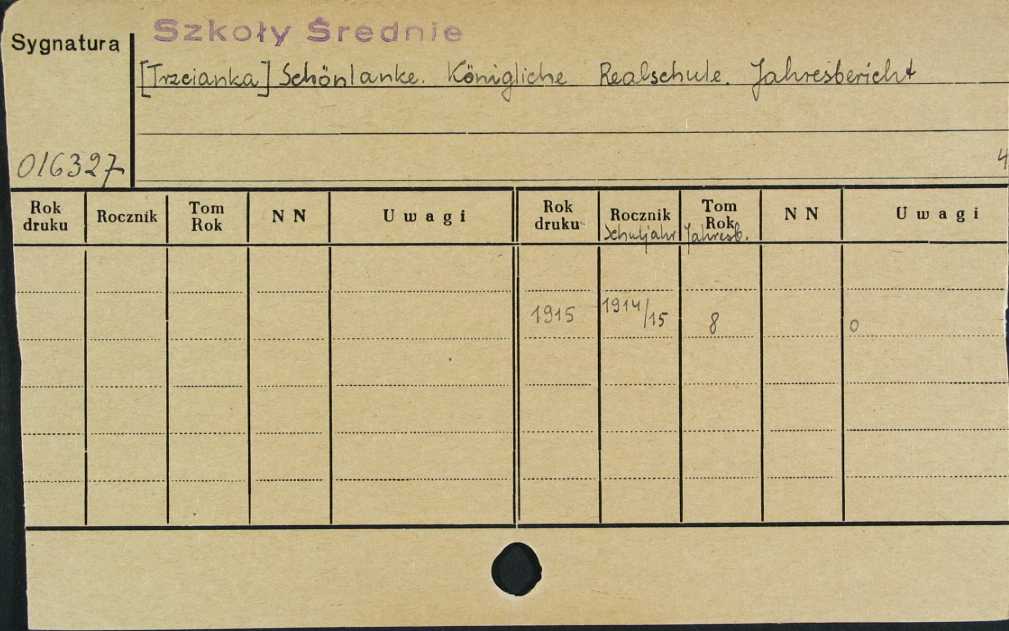 Szkoły Średnie
Sygnatura
[Trzcianka] Schönlanke. Königliche Realschule. Jahresbericht
016327
4
Rok druku Rocznik Tom Rok NN Uwagi Rok druku Rocznik Schuljahr Tom Rok Jahresb. NN Uwagi
1915 1914/15 8 0